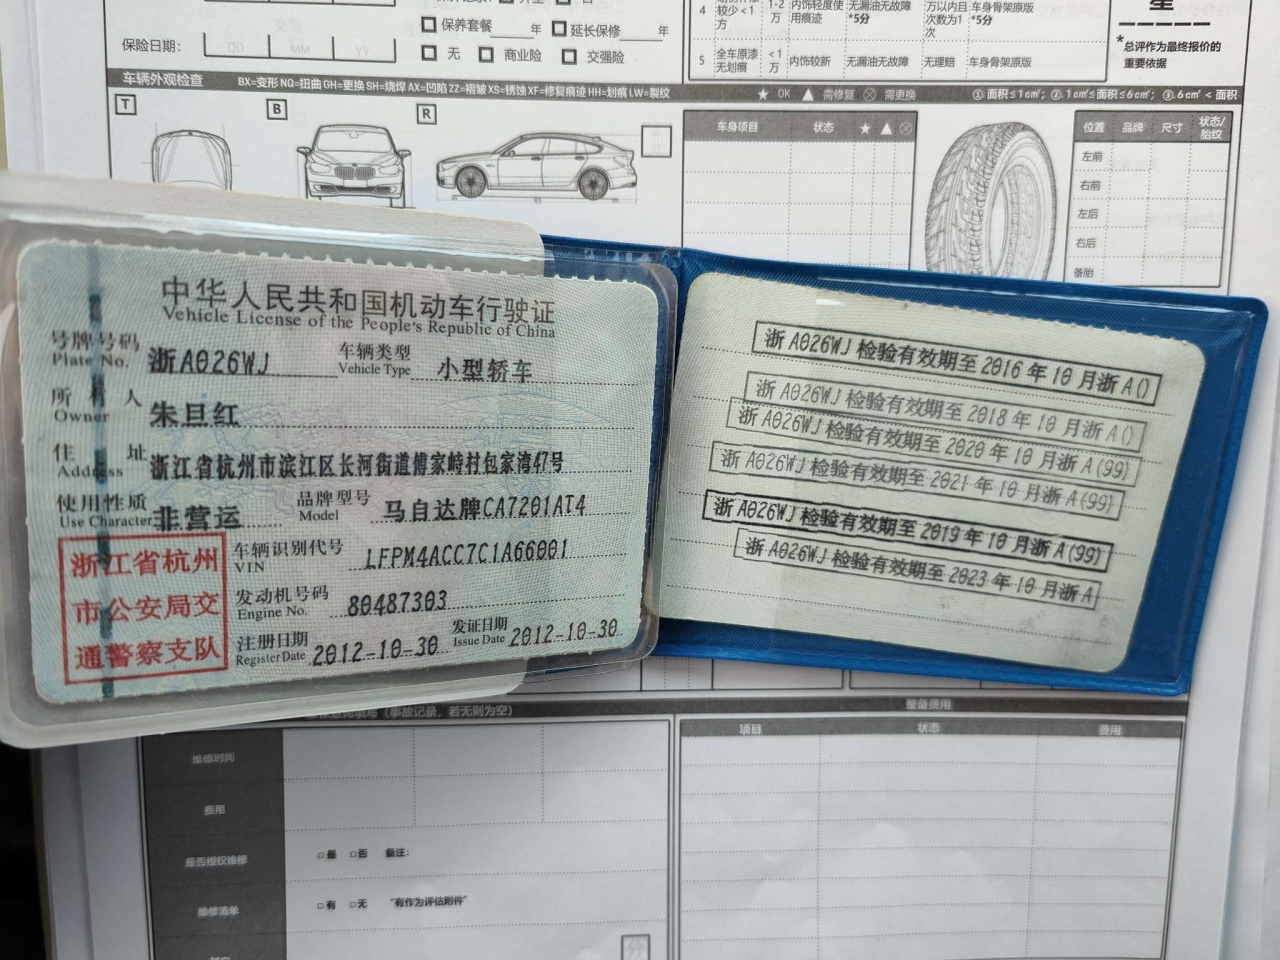 保养套餐 年 延长保修 年
保险日期: DD MM YY
无 商业险 交强险
4 较少<1方 1-2万 内饰轻度使用痕迹 无漏油无故障*5分 万以内且次数为1次 车身骨架原版*5分
5 全车原漆无划痕 <1万 内饰较新 无漏油无故障 无理赔 车身骨架原版
星
*总评作为最终报价的重要依据
车辆外观检查 BX=变形 NQ=扭曲 GH=更换 SH=烧焊 AX=凹陷 ZZ=褶皱 XS=锈蚀 XF=修复痕迹 HH=划痕 LW=裂纹
★ OK ▲ 需修复 ⊗ 需更换 ①.面积≤1cm²; ②.1cm²≤面积≤6cm²; ③.6cm²<面积
T B R
车身项目 状态 ★ ▲ ⊗
位置 品牌 尺寸 状态/胎纹
左前
右前
左后
右后
备胎
中华人民共和国机动车行驶证
Vehicle License of the People's Republic of China
号牌号码 Plate No. 浙A026WJ 车辆类型 Vehicle Type 小型轿车
所有人 Owner 朱旦红
住址 Address 浙江省杭州市滨江区长河街道傅家峙村包家湾47号
使用性质 Use Character 非营运 品牌型号 Model 马自达牌CA7201AT4
浙江省杭州
市公安局交
通警察支队
车辆识别代号 VIN LFPM4ACC7C1A66001
发动机号码 Engine No. 80487303
注册日期 Register Date 2012-10-30 发证日期 Issue Date 2012-10-30
浙A026WJ 检验有效期至 2016 年 10 月浙 A()
浙 A026WJ 检验有效期至 2018 年 10 月浙 A()
浙 A026WJ 检验有效期至 2020 年 10 月浙 A(99)
浙 A026WJ 检验有效期至 2021 年 10 月浙 A(99)
浙 A026WJ 检验有效期至 2019 年 10 月浙 A(99)
浙 A026WJ 检验有效期至 2023 年 10 月浙 A
(事故记录,若无则为空)
整备费用
维修时间
费用
是否授权维修 □是 □否 备注:
维修清单 □有 □无 "有作为评估附件"
项目 状态 费用